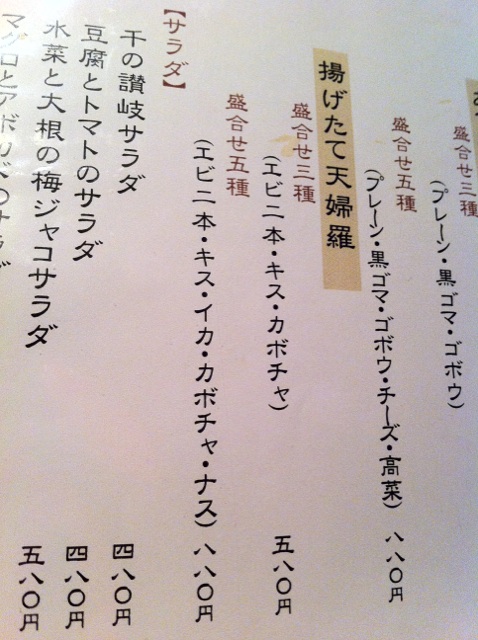 盛合せ三種
(プレーン・黒ゴマ・ゴボウ)
盛合せ五種
(プレーン・黒ゴマ・ゴボウ・チーズ・高菜) 八八〇円
揚げたて天婦羅
盛合せ三種
(エビ二本・キス・カボチャ) 五八〇円
盛合せ五種
(エビ二本・キス・イカ・カボチャ・ナス) 八八〇円
【サラダ】
千の讃岐サラダ 四八〇円
豆腐とトマトのサラダ 四八〇円
水菜と大根の梅ジャコサラダ 五八〇円
マグロとアボカドのサラダ